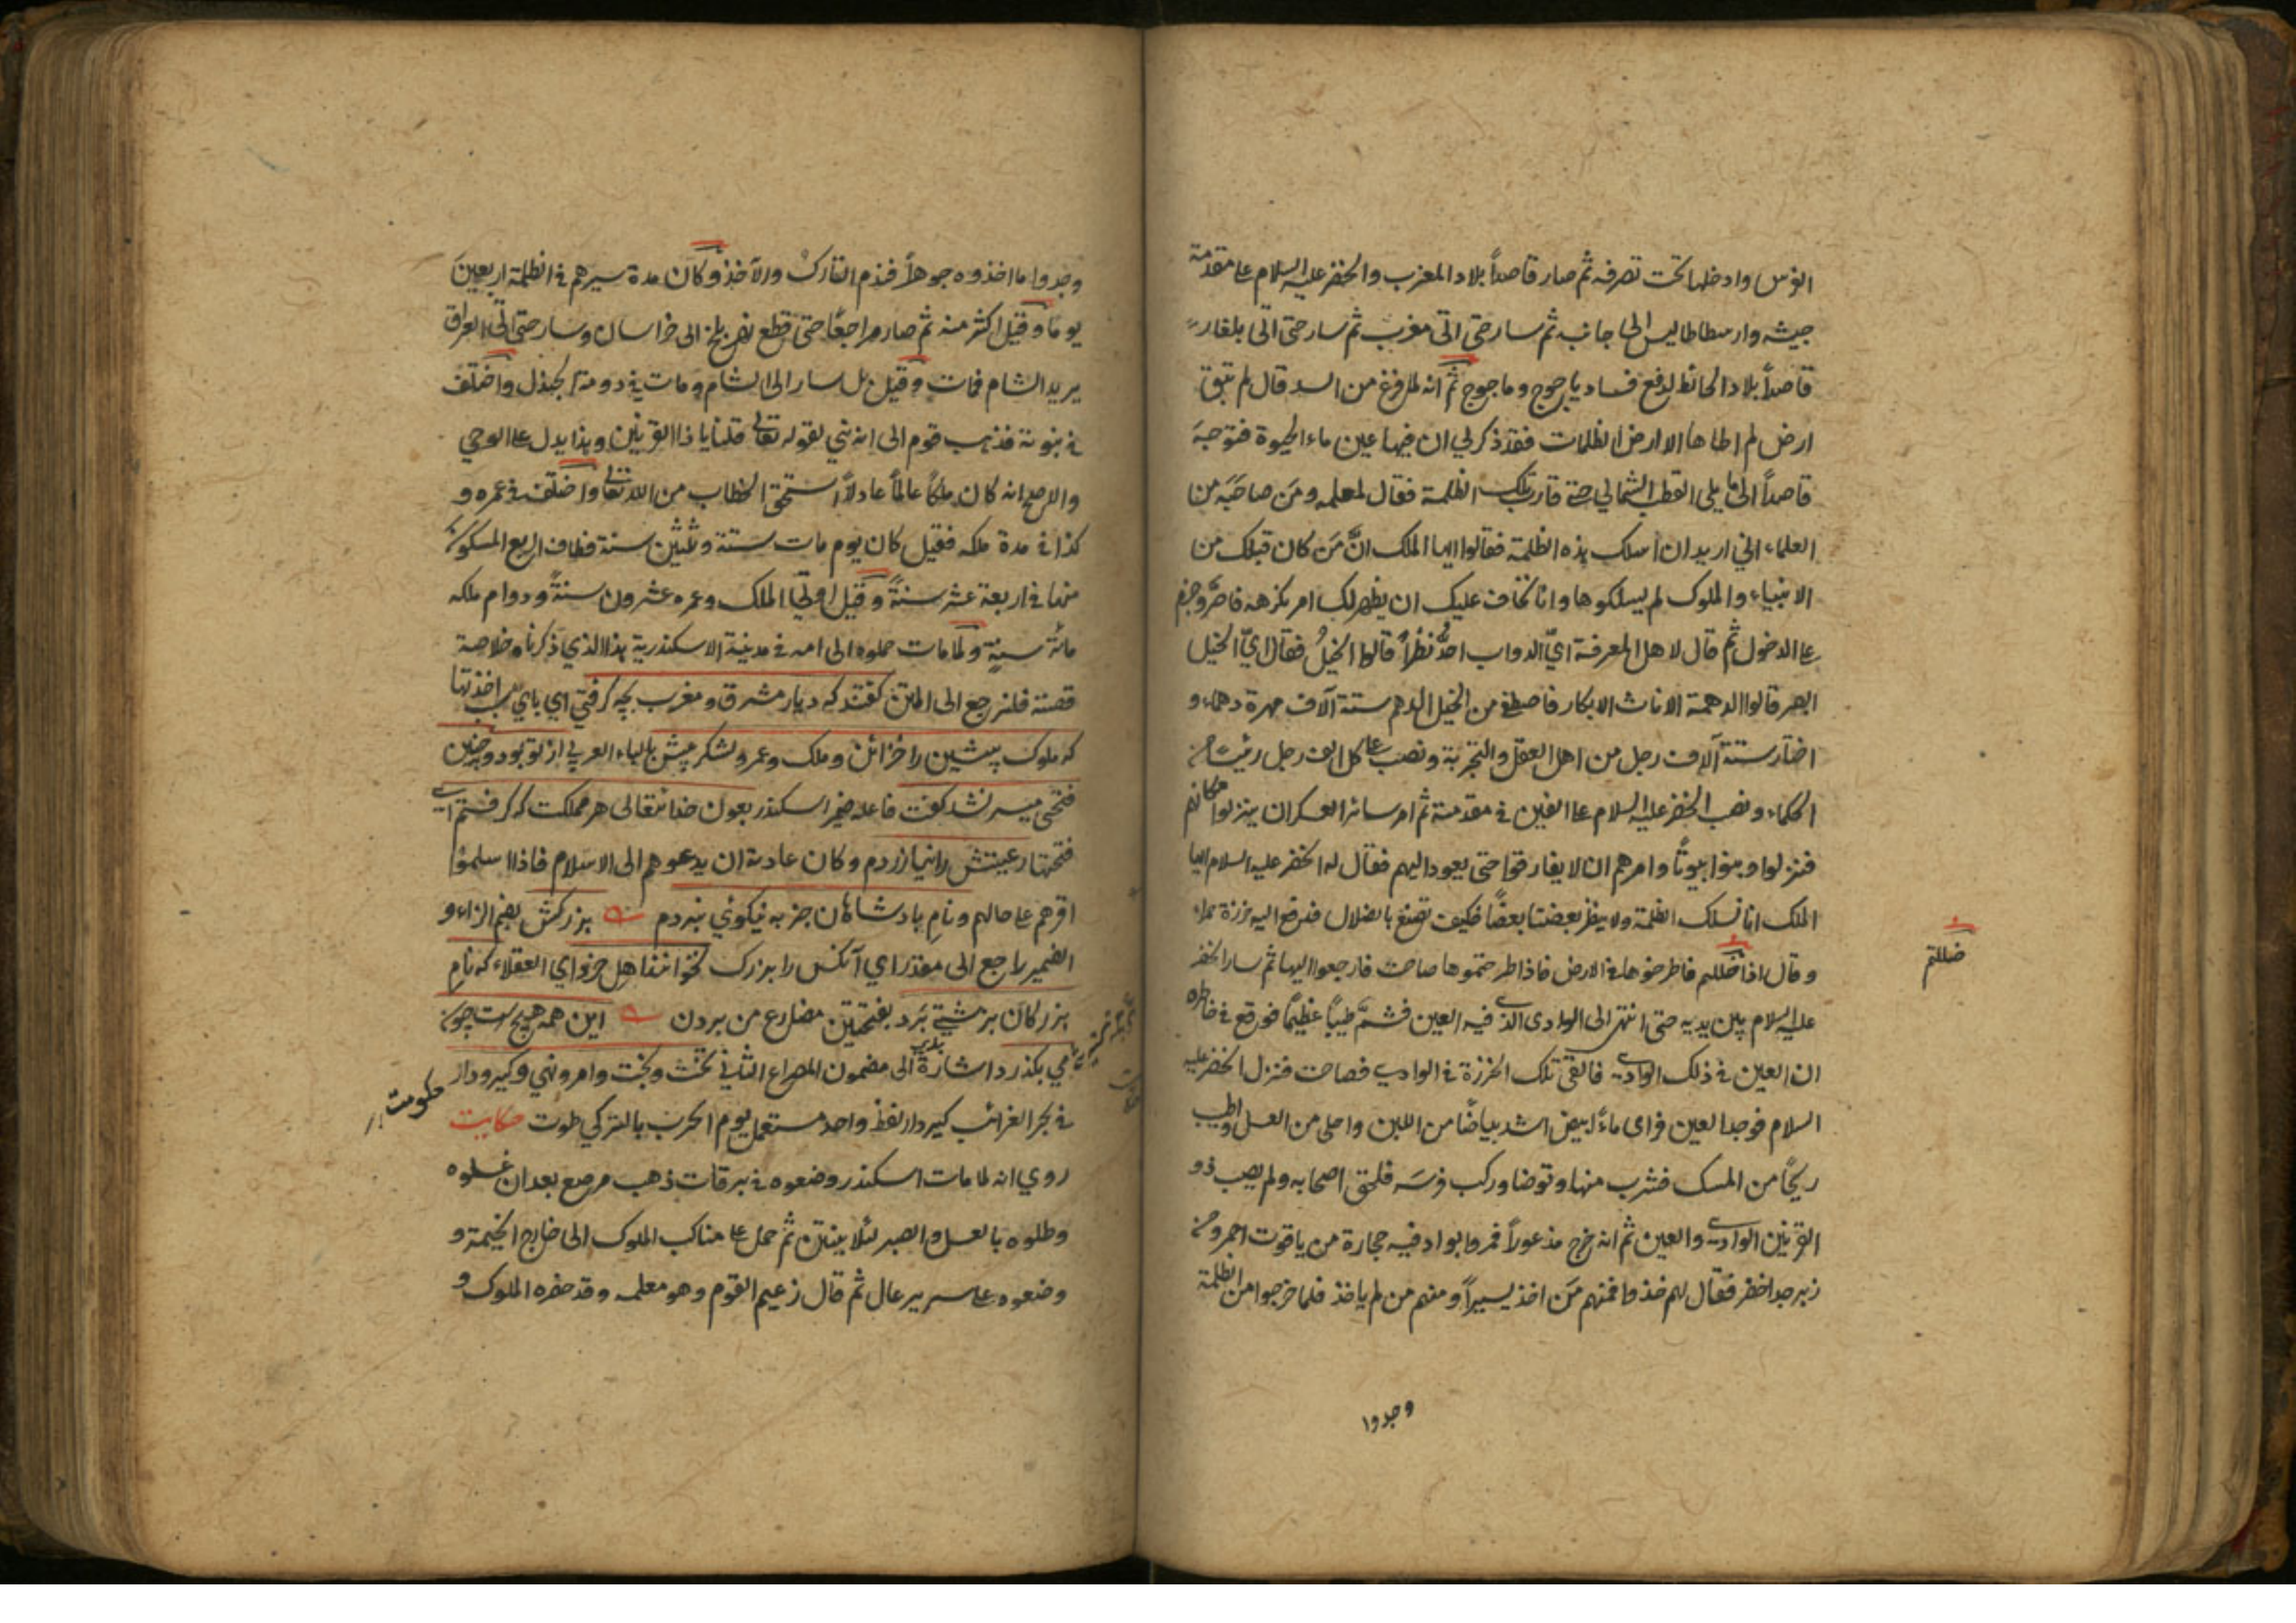 الفرس وادخلها تحت تصرفه ثم صار قاصداً بلاد المغرب والخضر عليه السلام على مقدمة
جيشه وارسطاطاليس الى جانبه ثم سار حتى اتى مغرب ثم سار حتى اتى بلغار
قاصداً بلاد الحائط لدفع فساد ياجوج وماجوج ثم انه لما فرغ من السد قال لم تبق
ارض لم اطاها الا ارض الظلمات فقد ذكر لي ان فيها عين ماء الحيوة فتوجه
قاصداً الى ما يلي القطب الشمالي حتى قارب تلك الظلمة فقال لمعلمه ومن صاحبه من
العلماء اني اريد ان اسلك هذه الظلمة فقالوا ايها الملك ان من كان قبلك من
الانبياء والملوك لم يسلكوها وانا نخاف عليك ان يظهر لك امر نكرهه فاصر وجزم
على الدخول ثم قال لاهل المعرفة اي الدواب احد نظراً قالوا الخيل فقال اي الخيل
ابصر قالوا الدهمة الاناث الابكار فاصطفى من الخيل الدهم ستة آلاف مهرة دهماء و
اختار ستة آلاف رجل من اهل العقل والتجربة ونصب على كل الف رجل رئيسا من
الحكماء ونصب الخضر عليه السلام على الفين في مقدمته ثم امر سائر العسكر ان ينزلوا مكانهم
فنزلوا وبنوا بيوتاً وامرهم ان لا يفارقوا حتى يعود اليهم فقال له الخضر عليه السلام ايها
الملك انا نسلك الظلمة ولا ينظر بعضنا بعضاً فكيف نصنع بالضلال فدفع اليه خرزة حمراء
وقال اذا ضللتم فاطرحوها في الارض فاذا طرحتموها صاحت فارجعوا اليها ثم سار الخضر
ضللتم
عليه السلام بين يديه حتى انتهى الى الوادى الذي فيه العين فشم طيباً عظيماً فوقع في خاطره
ان العين في ذلك الوادي فالقى تلك الخرزة في الوادي فصاحت فنزل الخضر عليه
السلام فوجد العين فراى ماءً ابيض اشد بياضاً من اللبن واحلى من العسل واطيب
ريحاً من المسك فشرب منها وتوضا وركب فرسه فلحق اصحابه ولم يصب ذو
القرنين الوادي والعين ثم انه خرج مذعوراً فمروا بواد فيه حجارة من ياقوت احمر ومن
زبرجد اخضر فقال لهم خذوا فمنهم من اخذ يسيراً ومنهم من لم ياخذ فلما خرجوا من الظلمة
وجدوا
وجدوا ما اخذوه جوهراً فندم التارك والآخذ وكان مدة سيرهم في الظلمة اربعين
يوما وقيل اكثر منه ثم صار راجعاً حتى قطع نهر بلخ الى خراسان وسار حتى اتى العراق
يريد الشام فمات وقيل بل سار الى الشام ومات في دومة الجندل واختلف
في نبوته فذهب قوم الى انه نبي لقوله تعالى قلنا يا ذا القرنين وهذا يدل على الوحي
والاصح انه كان ملكاً عالماً عادلاً استحق الخطاب من الله تعالى واختلف في عمره و
كذا في مدة ملكه فقيل كان يوم مات ستة وثلثين سنة فطاف الربع المسكون
منها في اربعة عشر سنةً وقيل اوتي الملك وعمره عشرون سنةً ودوام ملكه
مائة سنةٍ ولما مات حملوه الى امه في مدينة الاسكندرية هذا الذي ذكرنا وخلاصة
قصته فلنرجع الى المتن گفتند كه ديار مشرق ومغرب بچه گرفتي اي باي سبب اخذتها
كه ملوك پيشين را خزائن وملك وعمر ولشكر بيش بالباء العربي از تو بود وچنين
فتحى ميسر نشد گفت فاعله ضمير اسكندر بعون خدا تعالى هر مملكت كه گرفتم اي
فتحتها رعيتش را نيازردم وكان عادته ان يدعوهم الى الاسلام فاذا اسلموا
اقرهم على حالهم ونام پادشاهان جز به نيكوئي نبردم بزرگش بضم الزاء و
الضمير راجع الى مقدر اي آنكس را بزرك نخوانند اهل خرد اي العقلاء كه نام
بزرگان بزشتي بَرَد بفتحتين مضارع من بردن اين همه هيچ است چون
مي بگذرد اشارة الى مضمون المصراع الثاني تخت وبخت وامر ونهي وگير ودار
حكومت
في بحر الغرائب گيردار لفظ واحد مستعمل يوم الحرب بالتركي طوت حكايت
روي انه لما مات اسكندر وضعوه في تبرقات ذهب مرصع بعد ان غسلوه
وطلوه بالعسل والصبر لئلا ينتن ثم حمل على مناكب الملوك الى خارج الخيمة و
وضعوه على سرير عال ثم قال زعيم القوم وهو معلمه وقد حضره الملوك و